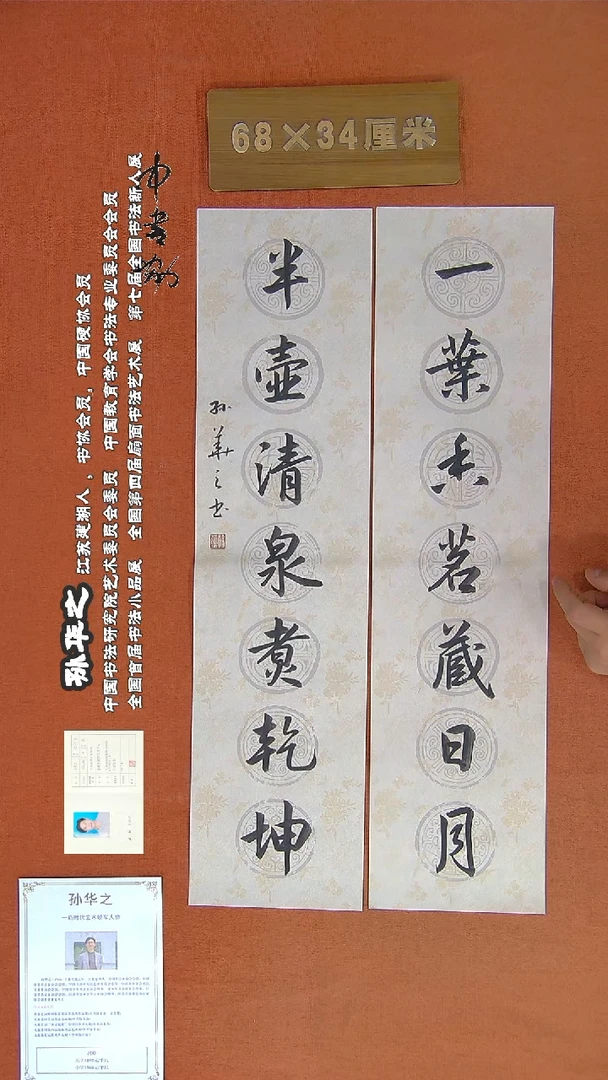 68×34厘米
一葉香茗藏日月
半壺清泉煮乾坤
孙華之书
孙华之 江苏建湖人，书协会员，中国硬协会员
中国书法研究院艺术委员会委员 中国教育学会书法专业委员会会员
全国首届书法小品展 全国第四届扇面书法艺术展 第七届全国书法新人展
孙华之